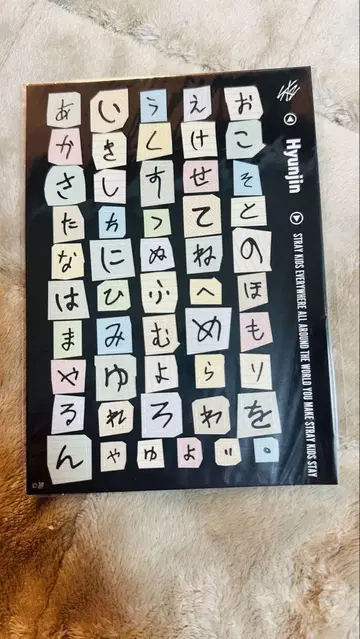 あいうえお
かきくけこ
さしすせそ
たちつてと
なにぬねの
はひふへほ
まみむめも
やゆよらり
るれろわを
んゃゅょ゛゜
SKZ
Hyunjin
STRAY KIDS EVERYWHERE ALL AROUND THE WORLD YOU MAKE STRAY KIDS STAY